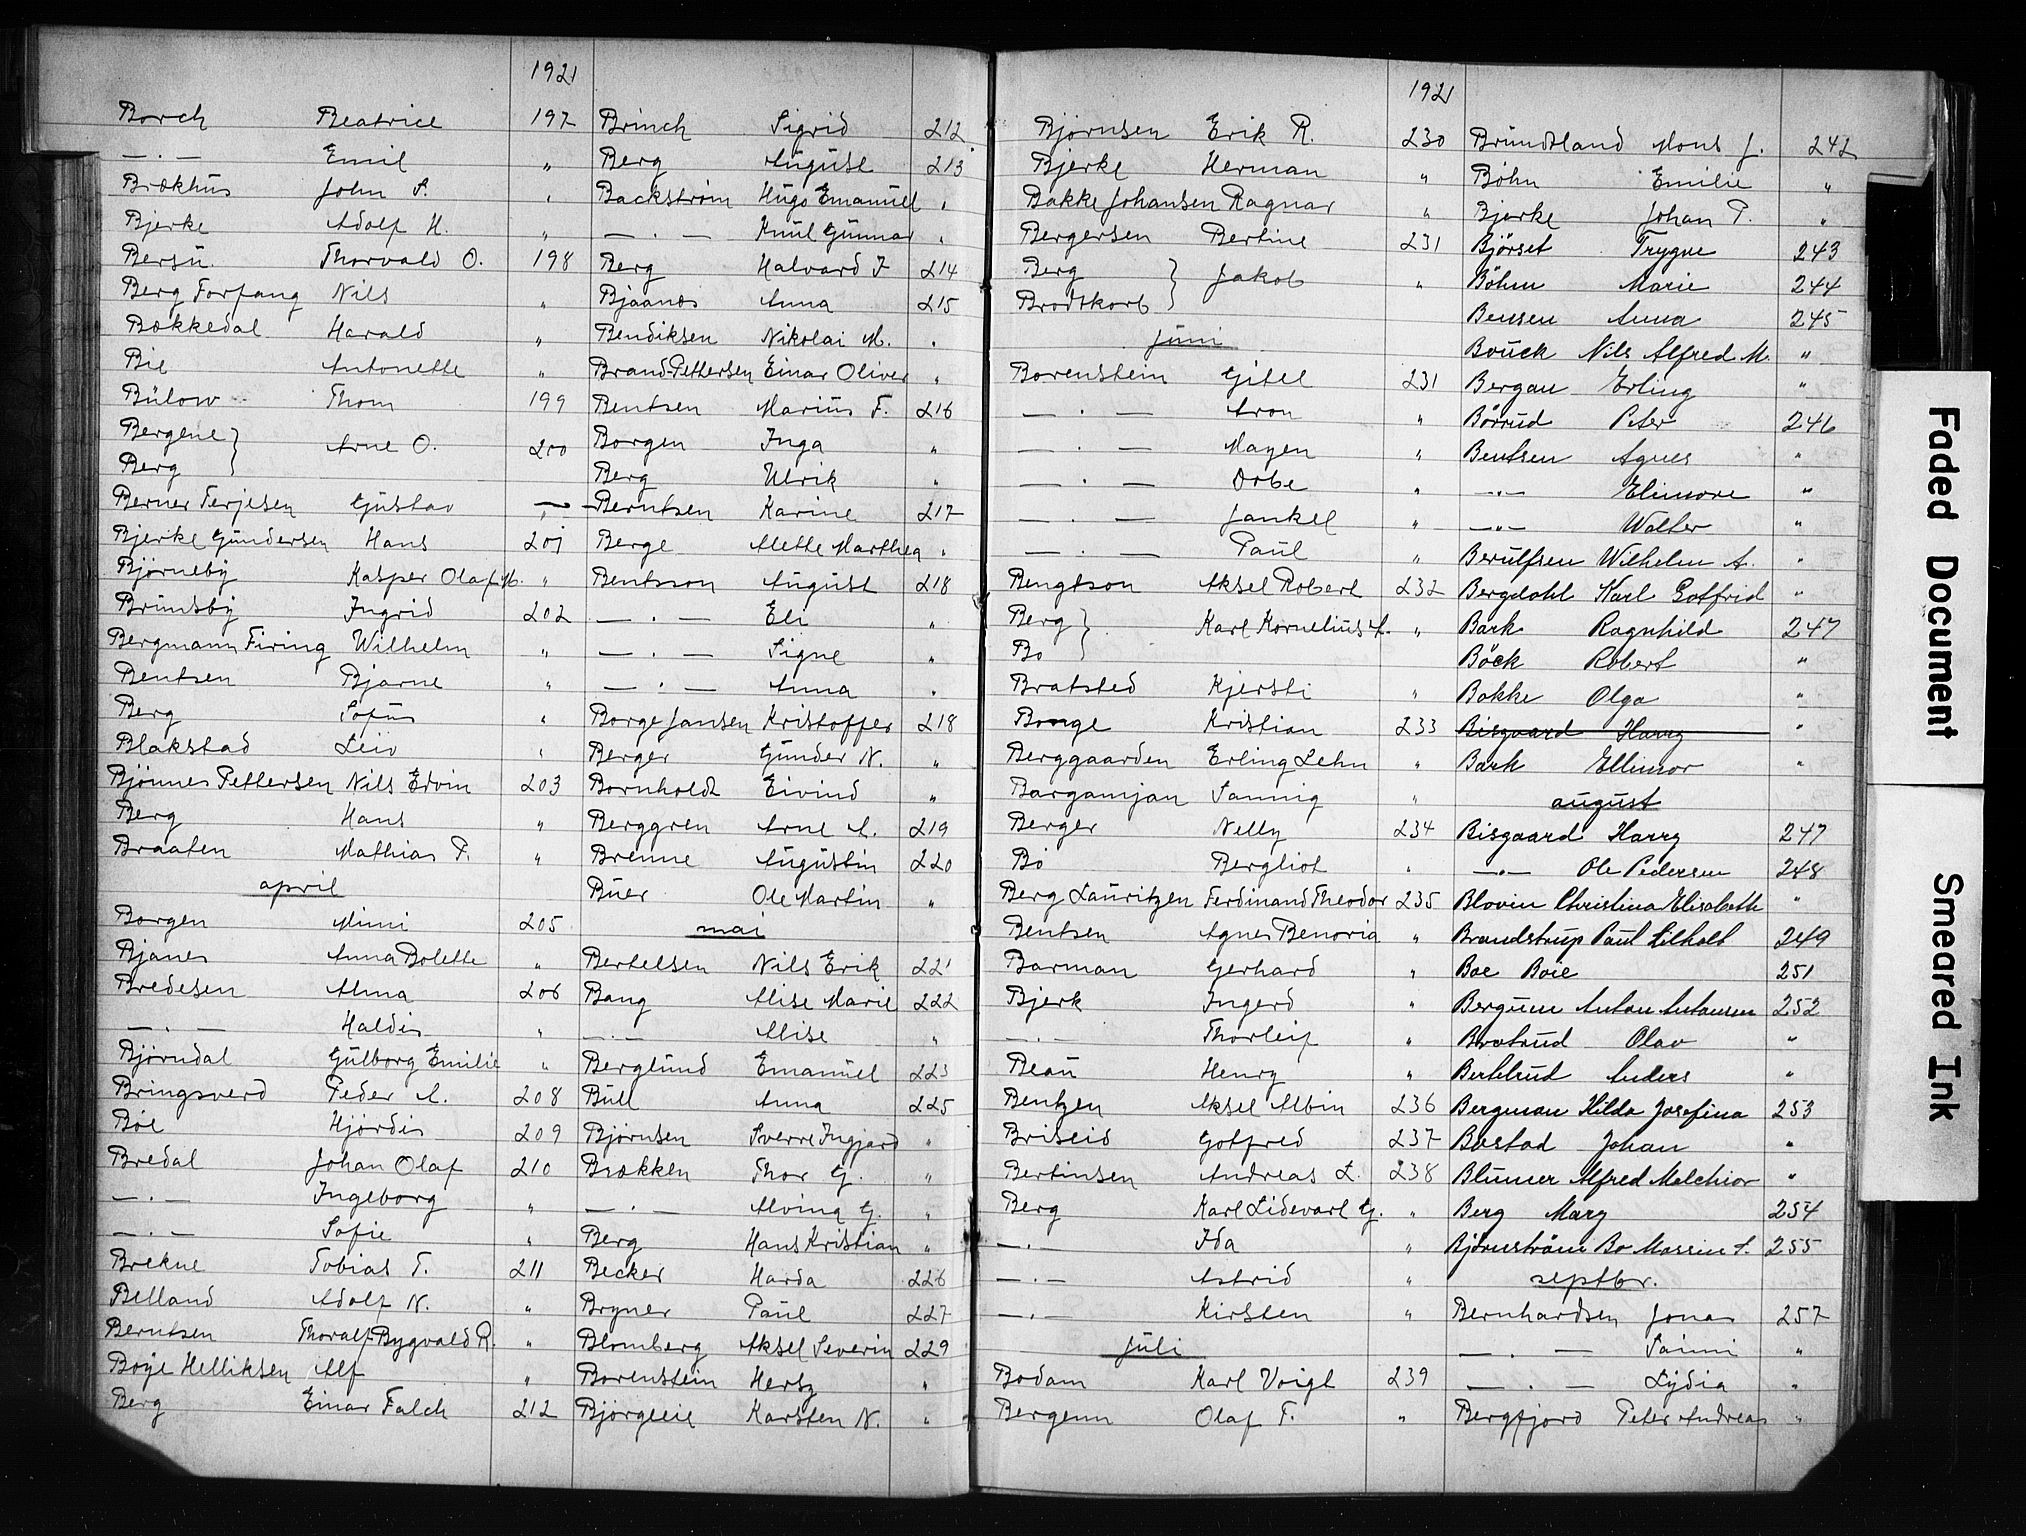 1921
Borch Beatrice 197
—.— Emil "
Brækhus John S. "
Bjerke Adolf H. "
Bersu Thorvald O. 198
Berg Forfang Nils "
Bækkedal Harald "
Bie Antonette "
Bülow Thom 199
Bergene }
Berg } Arne O. 200
Berner Terjesen Gustav "
Bjerke Gundersen Hans 201
Bjørneby Kasper Olaf M. "
Brunsby Ingrid 202
Bergmann Firing Wilhelm "
Bentsen Bjarne "
Berg Sofus "
Blakstad Leiv "
Bjønnes Pettersen Nils Edvin 203
Berg Hans "
Braaten Mathias P. "
april
Borgen Mimi 205
Bjanes Anna Bolette "
Bredesen Alma 206
—.— Haldis "
Bjørndal Gulborg Emilie "
Bringsverd Peder A. 208
Bøe Hjørdis 209
Bredal Johan Olaf 210
—.— Ingeborg "
—.— Sofie "
Brekne Tobias T. 211
Belland Adolf N. "
Berntsen Thoralf Bygvald R. "
Boye Helliksen Alf "
Berg Einar Falch 212
Brinch Sigrid 212
Berg August 213
Backstrøm Hugo Emanuel "
—.— Knut Gunnar "
Berg Halvard J 214
Bjaanæs Anna 215
Bendiksen Nikolai M. "
Brand-Pettersen Einar Oliver "
Bentsen Marius F. 216
Borgen Inga "
Berg Ulrik "
Berntsen Karine 217
Berge Mette Marthea "
Bentsson August 218
—.— Eli "
—.— Signe "
—.— Anna "
Borge Jansen Kristoffer 218
Berger Gunder N. "
Bornholdt Eivind "
Berggren Arne A. 219
Brenne Augustin 220
Buer Ole Martin "
mai
Bertelsen Nils Erik 221
Bang Alise Marie 222
—.— Alise "
Berglund Emanuel 223
Bull Anna 225
Bjørnsen Sverre Ingjard "
Brækken Thor G. "
—.— Alvina G. "
Berg Hans Kristian "
Becker Harda 226
Bryner Paul 227
Blomberg Aksel Severin 229
Borenstein Hersz "
Bjørgleie Karsten N. "
1921
Bjørnsen Erik R. 230
Bjerke Herman "
Bakke Johansen Ragnar "
Bergersen Bertine 231
Berg }
Brodtkorb } Jakob "
juni
Borenstein Gitel 231
—.— Aron "
—.— Mayen "
—.— Dobe "
—.— Jankel "
—.— Paul "
Bengtson Aksel Robert 232
Berg }
Bo } Karl Kornelius A. "
Bratsted Kjersti "
Borge Kristian 233
Berggaarden Erling Lehn "
Bargamjan Sannig "
Berger Nelly 234
Bö Bergliot "
Berg Lauritzen Ferdinand Theodor 235
Bentsen Agnes Benovia "
Barman Gerhard "
Bjerk Ingerd "
—.— Thorleif "
Beau Henry "
Bentzen Aksel Albin 236
Briseid Gotfred 237
Bertinsen Andreas L. 238
Berg Karl Lidevarl G. "
—.— Ida "
—.— Astrid "
—.— Kirsten "
juli
Bodam Karl Voigt 239
Bergenn Olaf F. "
Brundtland Mons J. 242
Bøhn Emilie "
Bjerke Johan P. "
Bjørset Trygve 243
Böhm Marie 244
Bensen Anna 245
Bouck Nils Alfred M. "
Bergan Erling "
Börrud Peter 246
Bentsen Agnes "
—"— Elinore "
—"— Walter "
Berulfsen Wilhelm A. "
Bergdahl Karl Gottfrid "
Bark Ragnhild 247
Böck Robert "
Bakke Olga "
Bisgaard Harry "
Bark Ellinor "
august
Bisgaard Harry 247
—"— Ole Pedersen 248
Blovin Christina Elisabeth "
Brandstrup Paul Lilholt 249
Boe Boie 251
Bergum Anton Antonsen 252
Brotrud Olav "
Berteltrud Anders "
Bergman Hilda Josefina 253
Bastad Johan "
Blumer Alfred Melchior "
Berg Mary 254
Bjørnström Bo Massin A. 255
septbr.
Bernhardsen Jonas 257
—.— Sanni "
—.— Lydia "
Bergfjord Peter Andreas "
Faded Document
Smeared Ink